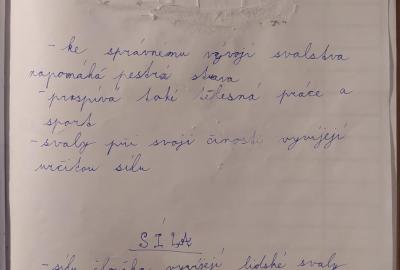 - ke správnému vývoji svalstva
napomáhá pestrá strava
- prospívá také tělesná práce a
sport
- svaly při svojí činosti vyvíjejí
určitou sílu
SÍLA
- síly člověka vyvíjejí lidské svaly